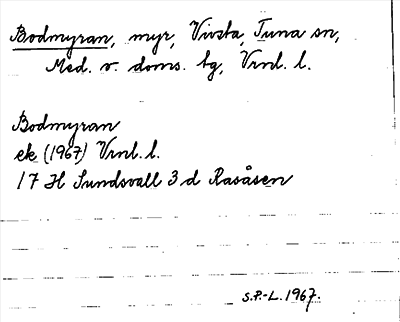 Bodmyran, myr, Vivsta, Tuna sn,
Med. v. doms. tg, Vrnl. l.
Bodmyran
ek (1967) Vrnl. l.
17 H Sundsvall 3 d Rasåsen
S.P.-L. 1967.